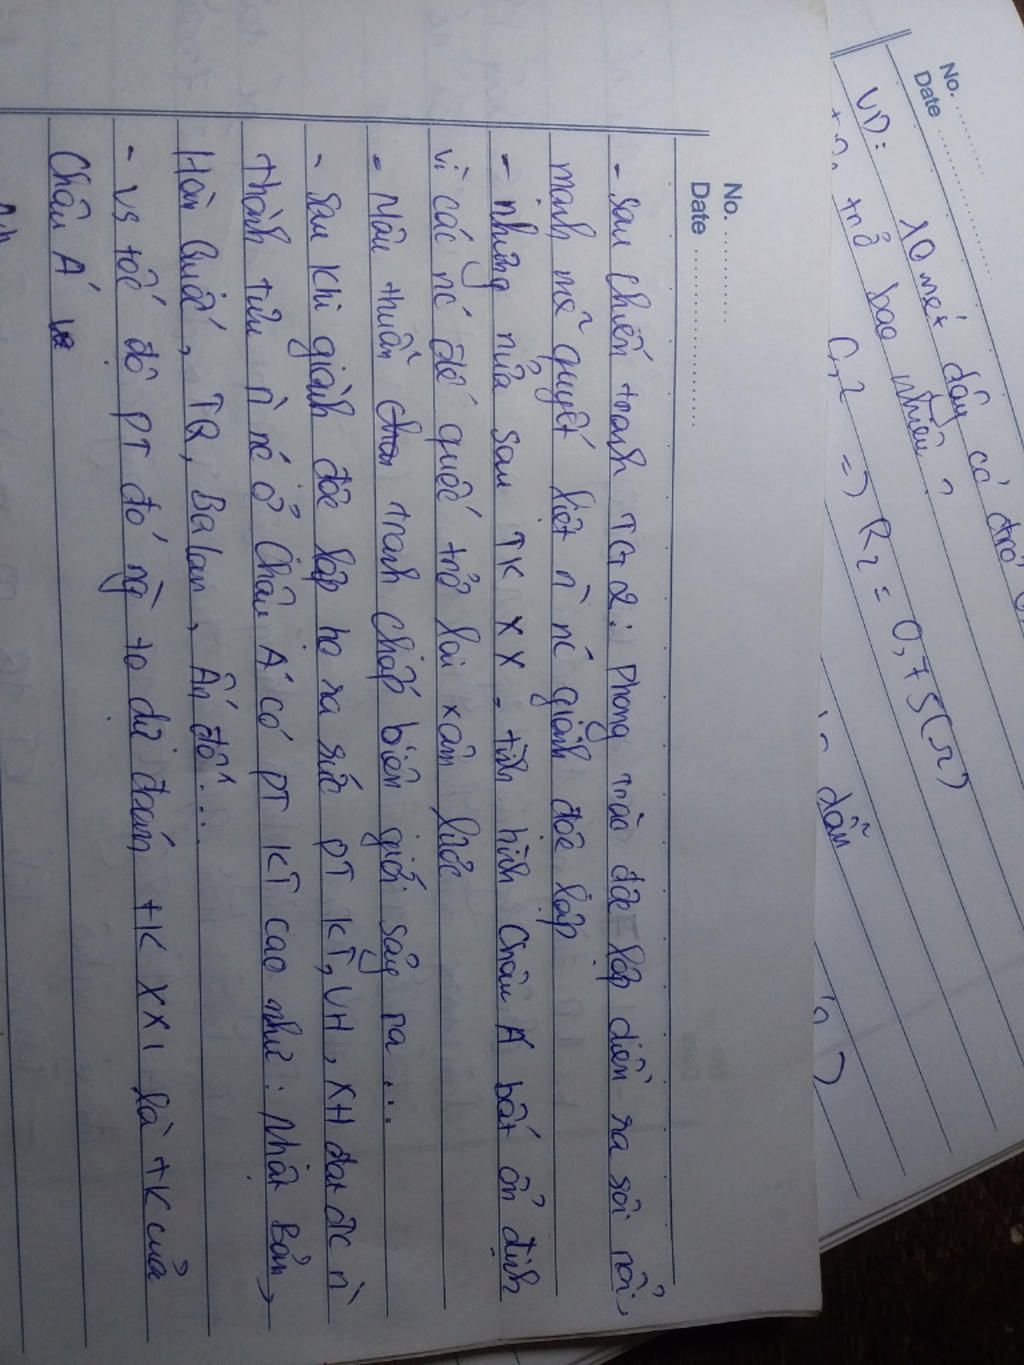 No.
Date
- Sau chiến tranh TG 2: Phong trào độc lập diễn ra sôi nổi,
mạnh mẽ quyết liệt n nc giành độc lập
- những nửa sau TK XX, tình hình Châu Á bất ổn định
vì các nc đế quốc trở lại xâm lược
- Mâu thuẫn tranh chấp biên giới sảy ra ...
- Sau khi giành độc lập họ ra sức PT KT, VH, XH đạt đc n
thành tựu n nc ở Châu Á có PT KT cao như: Nhật Bản,
Hàn Quốc, TQ, Balan, Ấn độ ...
- Vs tốc độ PT đó ng ta dự đoán TK XXI là TK của
Châu Á
No.
Date
VD: 10 mét dây có trở
trở bao nhiêu?
0,2 => R2 = 0,75(Ω)
dẫn